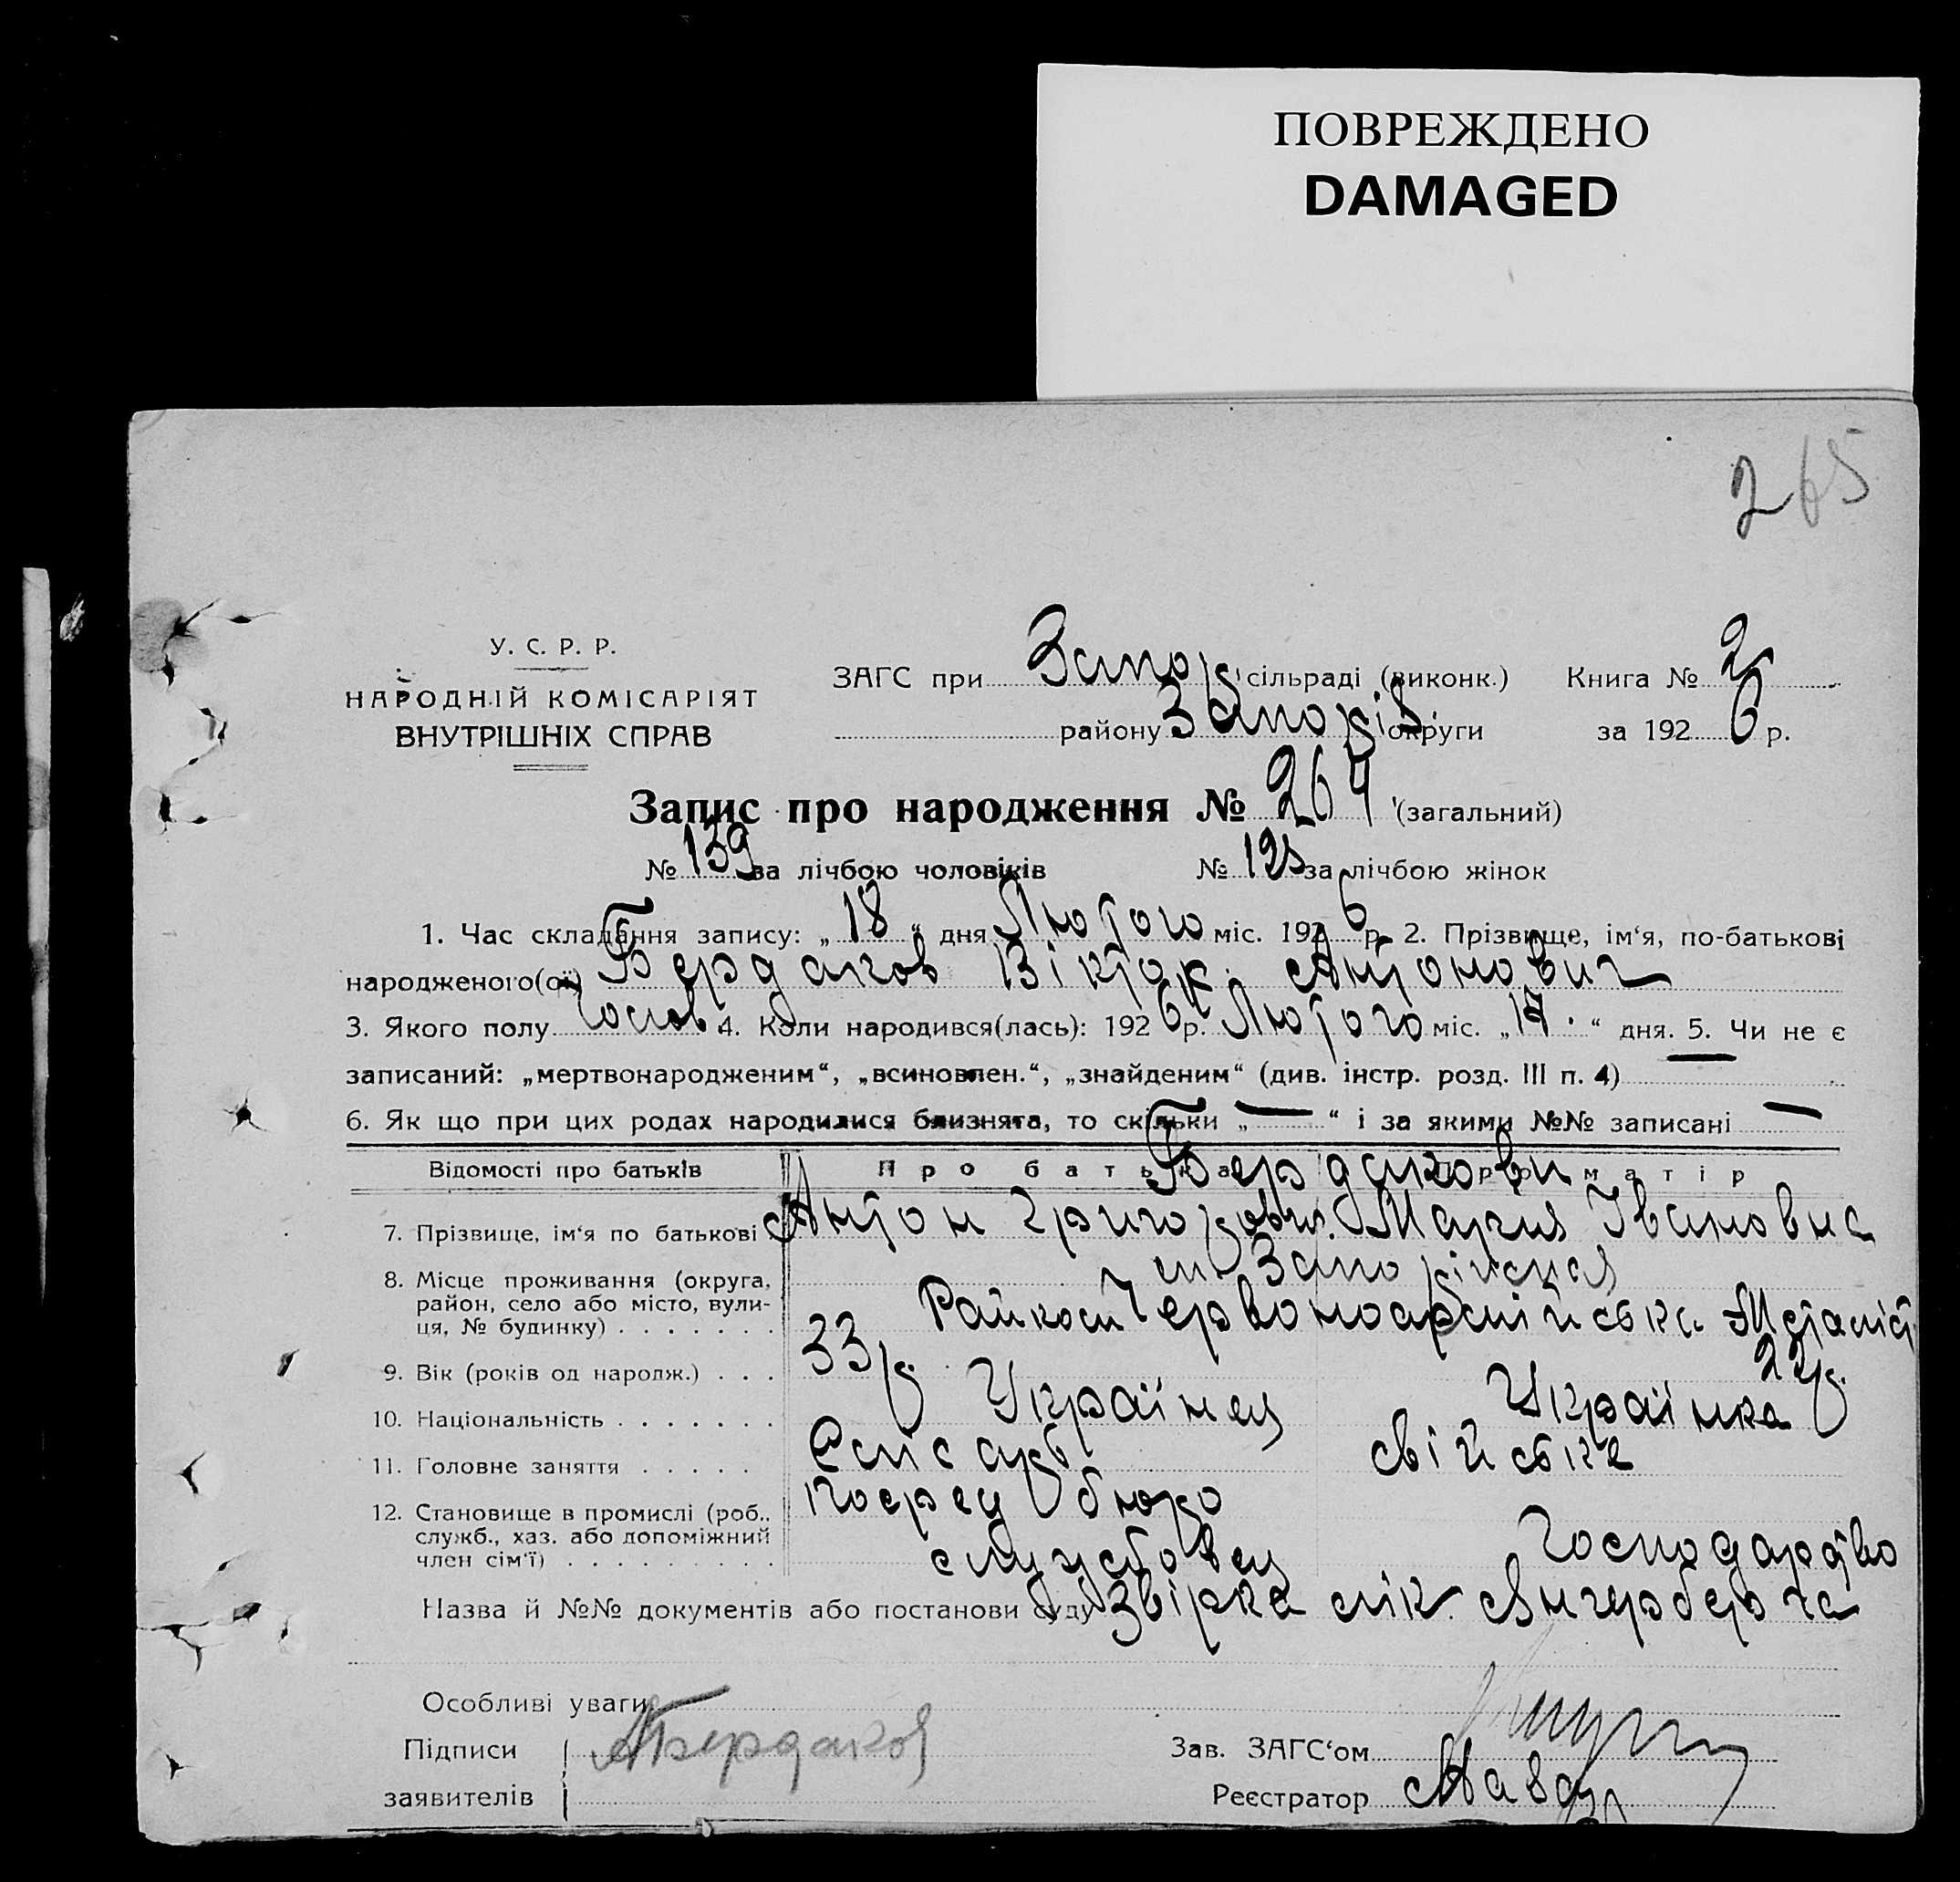 ПОВРЕЖДЕНО
DAMAGED
265
У. С. Р. Р.
НАРОДНІЙ КОМІСАРІЯТ
ВНУТРІШНІХ СПРАВ
ЗАГС при Запор. сільраді (виконк.) Книга № 2
району Запоріз. округи за 1926 р.
Запис про народження № 264 (загальний)
№ 139 за лічбою чоловіків № 125 за лічбою жінок
1. Час складання запису: „18“ дня Лютого міс. 1926 р. 2. Прізвище, ім‘я, по-батькові
народженого(ої) Бердаков Віктор. Антонович
3. Якого полу чолов. 4. Коли народився(лась): 1926 р. Лютого міс. „17.“ дня. 5. Чи не є
записаний: „мертвонародженим“, „всиновлен.“, „знайденим“ (див. інстр. розд. III п. 4) —
6. Як що при цих родах народилися близнята, то скільки „—“ і за якими №№ записані —
Відомості про батьків Про батька Про матір
Бердакови
7. Прізвище, ім‘я по батькові Антон Григорович. Мария Івановна
8. Місце проживання (округа,
район, село або місто, вули-
ця, № будинку) . . . . . . . Червоноармійська
9. Вік (років од народж.) . . . 33 р. 22 р.
10. Національність . . . . . . . Українец Українка
11. Головне заняття . . . . . свійське
12. Становище в промислі (роб.,
служб., хаз. або допоміжний
член сім‘ї) . . . . . . . . . службовец Господарство
Назва й №№ документів або постанови суду Звірка лік.
Особливі уваги
Підписи АБердаков Зав. ЗАГС‘ом
заявителів Реєстратор